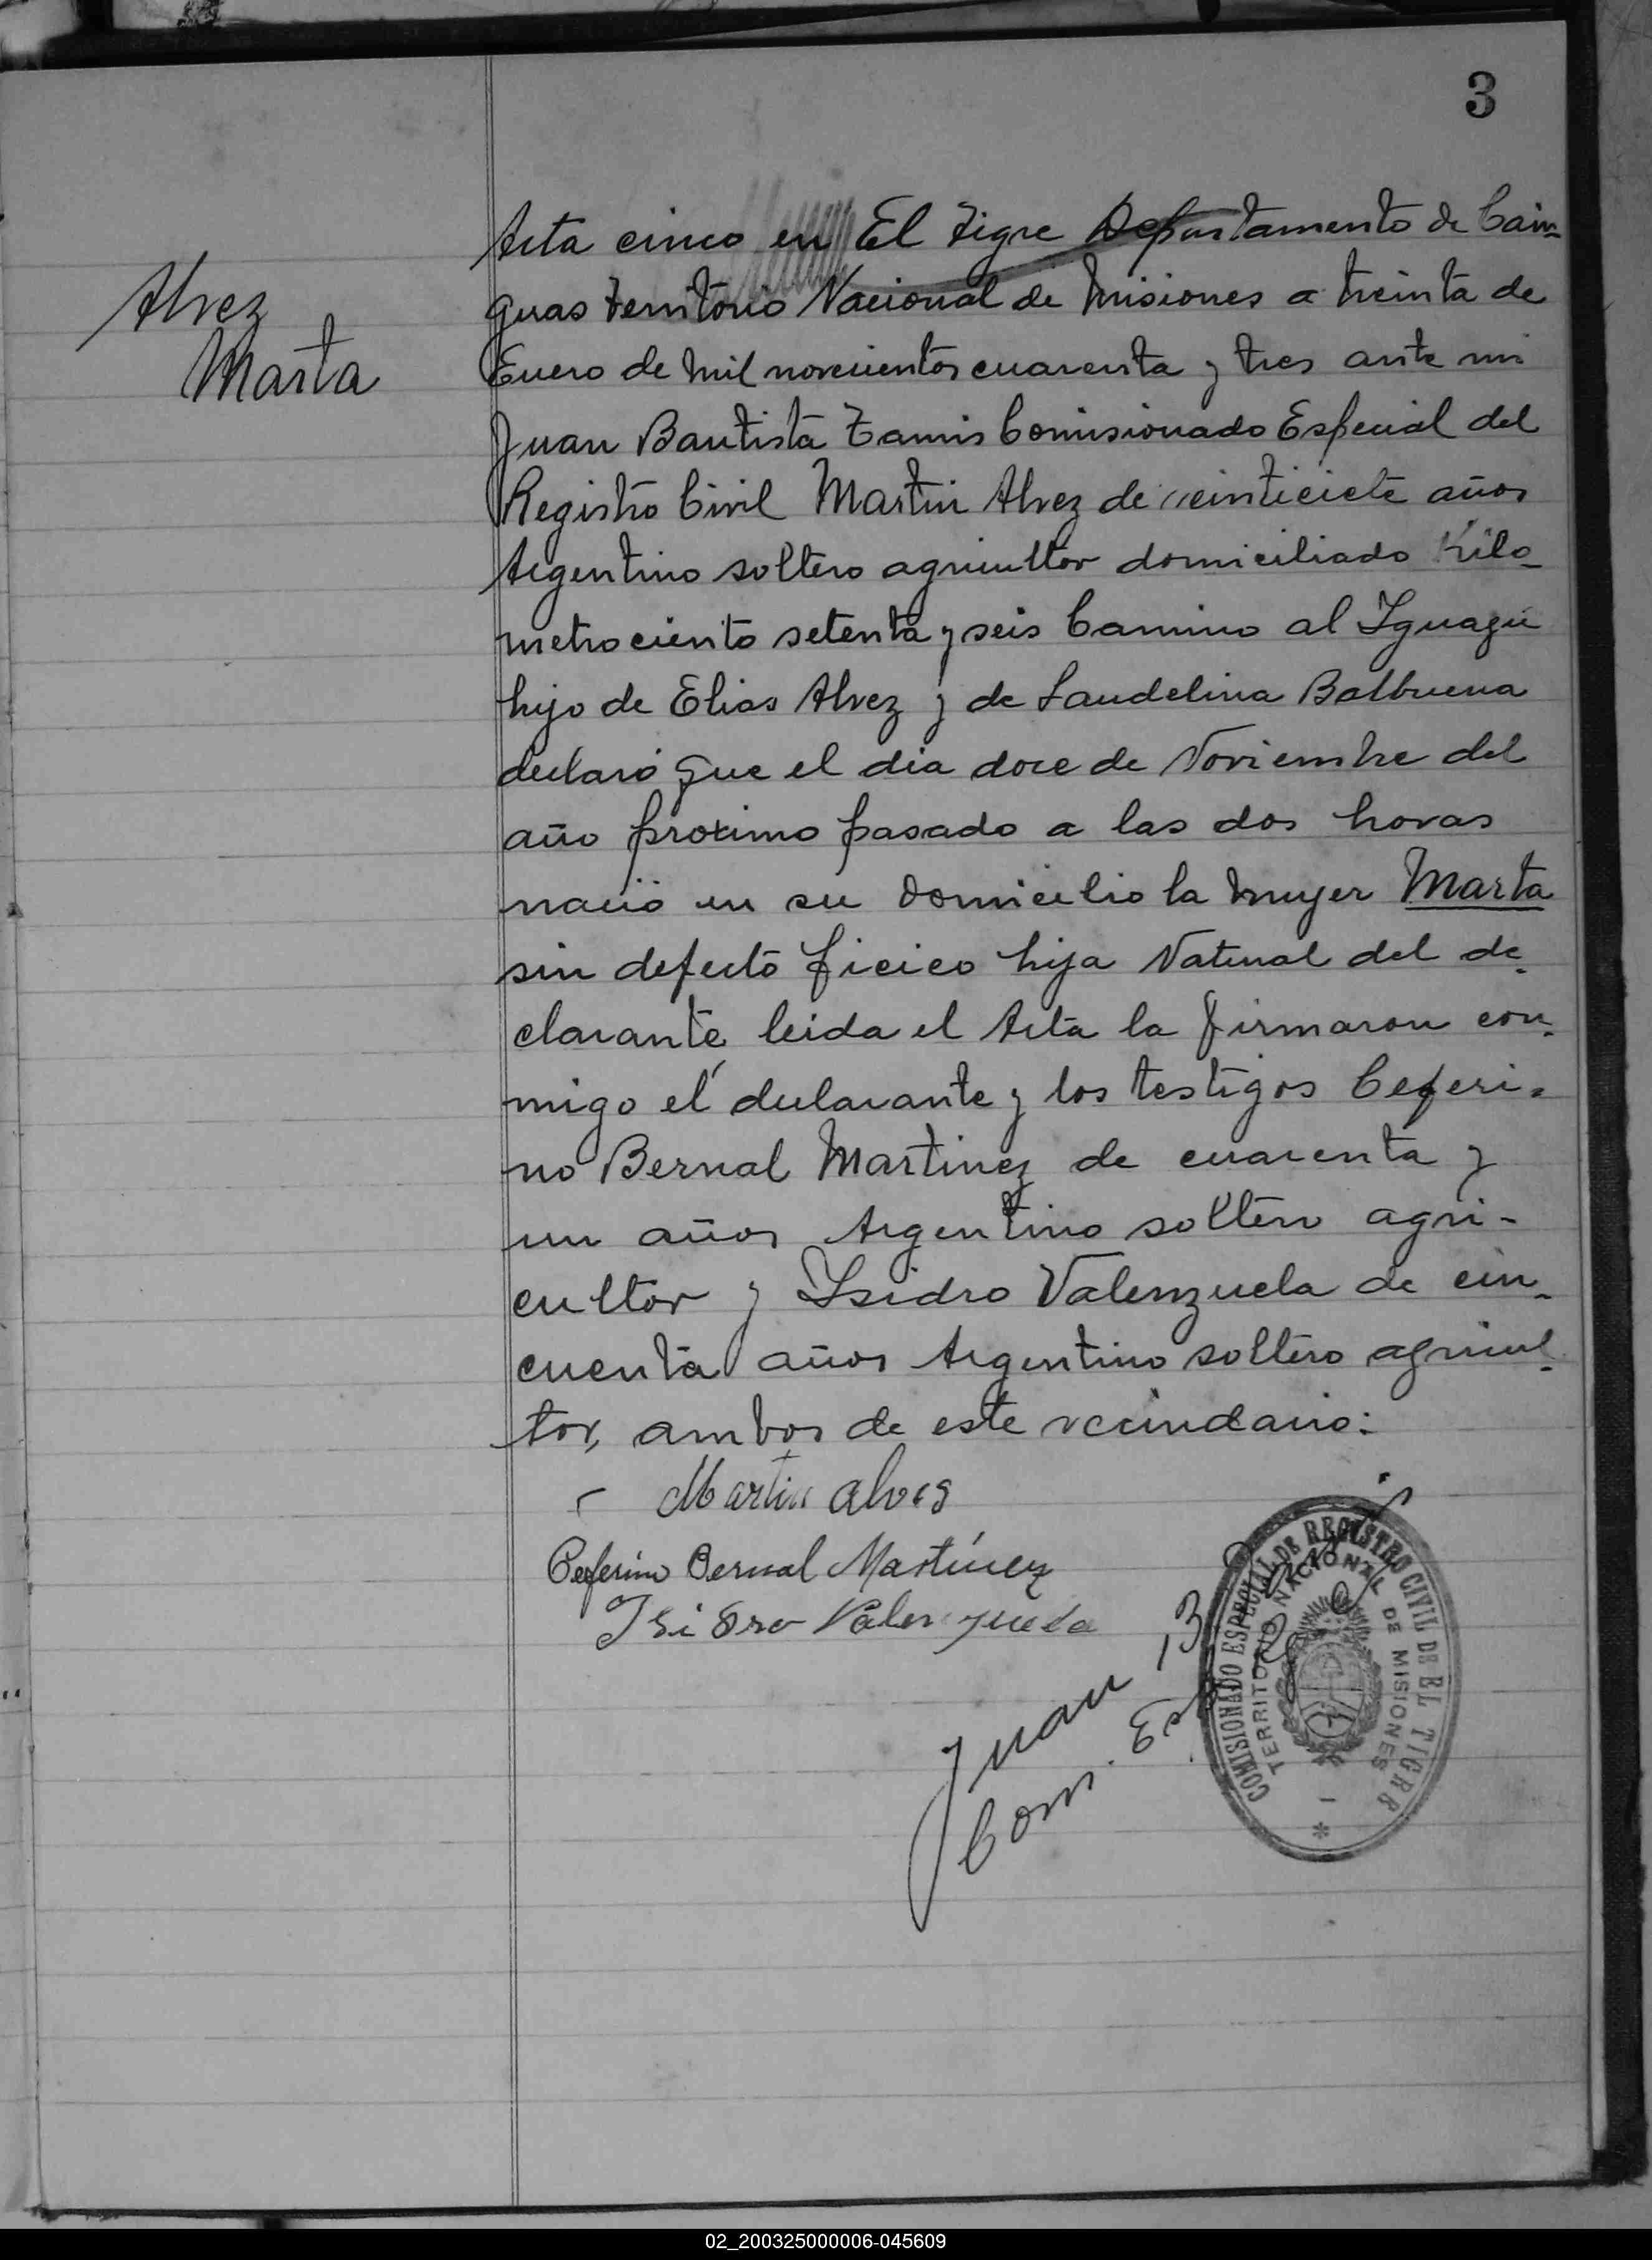 3
Alvez
Marta
Acta cinco en El Tigre Departamento de Cain-
guas Territorio Nacional de Misiones a treinta de
Enero de mil novecientos cuarenta y tres ante mi
Juan Bautista Tamis Comisionado Especial del
Registro Civil Martin Alvez de veinticiete años
Argentino soltero agricultor domiciliado Kilo-
metro ciento setenta y seis Camino al Iguazú
hijo de Elias Alvez y de Laudelina Balbuena
declaró que el dia doce de Noviembre del
año proximo pasado a las dos horas
nació en su domicilio la mujer Marta
sin defecto ficico hija Natural del de-
clarante, leida el Acta la firmaron con-
migo el declarante y los testigos Ceferi-
no Bernal Martinez de cuarenta y
un años Argentino soltero agri-
cultor y Isidro Valenzuela de cin-
cuenta años Argentino soltero agricul-
tor, ambos de este vecindario:
- Martin Alves
Ceferino Bernal Martínez
Isidro Valenzuela
Juan B.
Com. Esp
COMISIONADO ESPECIAL DE REGISTRO CIVIL DE EL TIGRE
TERRITORIO NACIONAL DE MISIONES
02_200325000006-045609